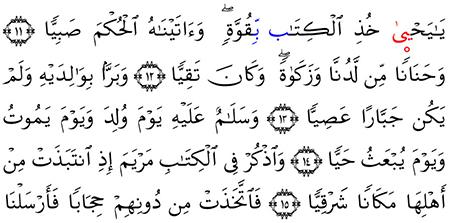 يَـٰيَحْيَىٰ خُذِ ٱلْكِتَـٰب بِّقُوَّةٍۖ وَءَاتَيْنَـٰهُ ٱلْحُكْمَ صَبِيًّا ۝١١
وَحَنَانًا مِّن لَّدُنَّا وَزَكَوٰةًۖ وَكَانَ تَقِيًّا ۝١٢ وَبَرًّۢا بِوَٰلِدَيْهِ وَلَمْ
يَكُن جَبَّارًا عَصِيًّا ۝١٣ وَسَلَـٰمٌ عَلَيْهِ يَوْمَ وُلِدَ وَيَوْمَ يَمُوتُ
وَيَوْمَ يُبْعَثُ حَيًّا ۝١٤ وَٱذْكُرْ فِى ٱلْكِتَـٰبِ مَرْيَمَ إِذِ ٱنتَبَذَتْ مِنْ
أَهْلِهَا مَكَانًا شَرْقِيًّا ۝١٥ فَٱتَّخَذَتْ مِن دُونِهِمْ حِجَابًا فَأَرْسَلْنَا